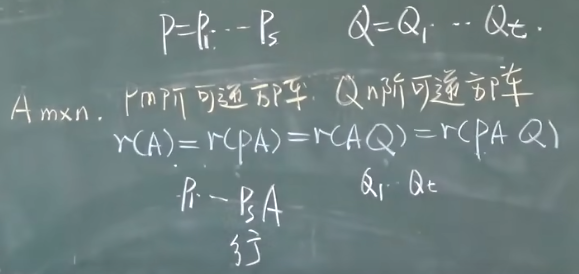 P=P₁…Pₛ Q=Q₁…Qₜ.
A m×n. P m阶可逆方阵. Q n阶可逆方阵
r(A)=r(PA)=r(AQ)=r(PAQ)
P₁…PₛA Q₁…Qₜ
行